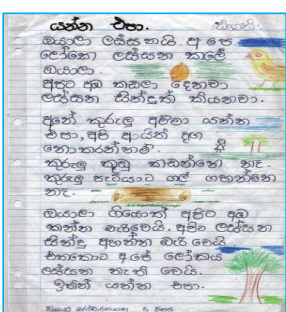 යන්න එපා.
ඔයාලා ලස්සනයි. අපේ
ලෝකෙ ලස්සන කලේ
ඔයාලා.
අපට අඹ කඩලා දෙනවා
ලස්සන සින්දුත් කියනවා.
අනේ කුරුලු අම්මා යන්න
එපා, අපි ආයිත් දඟ
නොකරන්නම්.
කුරුලු කූඩු කඩන්නෙ නෑ.
කුරුලු පැටියාට ගල් ගහන්නෙ
නෑ.
ඔයාලා ගියොත් අපිට අඹ
කන්න බැරිවෙයි. අපිට ලස්සන
සින්දු අහන්න බැරි වෙයි.
එතකොට අපේ ලෝකය
ලස්සන නැති වෙයි.
ඉතින් යන්න එපා.